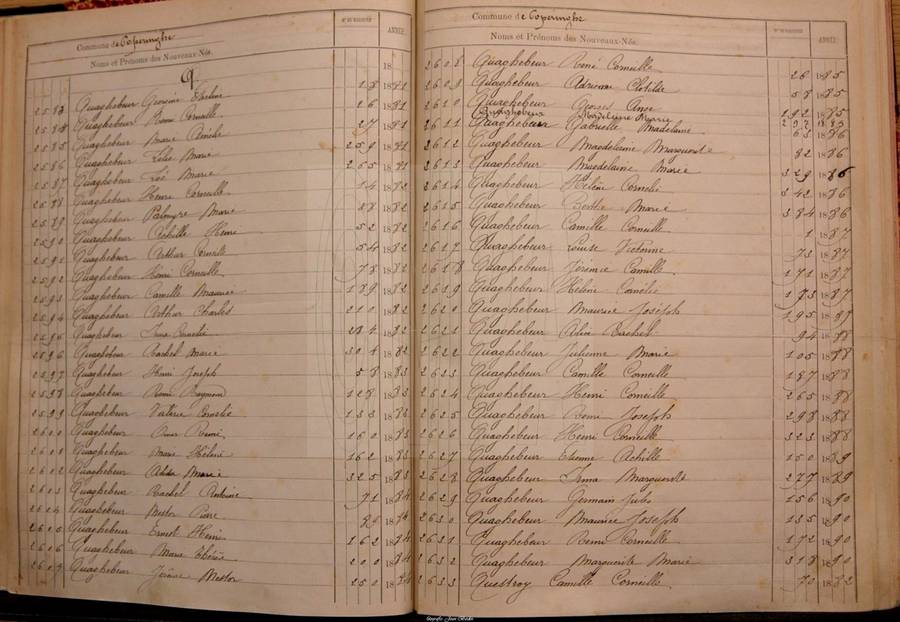 Commune de Poperinghe
Noms et Prénoms des Nouveaux-Nés.
ANNÉE
18
Q
2583 Quaghebeur 18 1881
2584 Quaghebeur Remi Corneille 26 1881
2585 Quaghebeur Marie 27 1881
2586 Quaghebeur Marie 259 1881
2587 Quaghebeur Marie 265 1881
2588 Quaghebeur Henri Corneille 14 1882
2589 Quaghebeur Palmyre Marie 1882
2590 Quaghebeur Achille Henri 52 1882
2591 Quaghebeur Arthur Corneille 54 1882
2592 Quaghebeur Remi Corneille 78 1882
2593 Quaghebeur Camille Maurice 189 1882
2594 Quaghebeur Arthur Charles 210 1882
2595 Quaghebeur Irma 284 1882
2596 Quaghebeur Rachel Marie 304 1882
2597 Quaghebeur Henri Joseph 58 1883
2598 Quaghebeur Remi Raymond 128 1883
2599 Quaghebeur Valérie 133 1883
2600 Quaghebeur Remi 160 1883
2601 Quaghebeur Marie Hélène 162 1883
2602 Quaghebeur Marie 325 1883
2603 Quaghebeur Rachel 71 1884
2604 Quaghebeur Nestor 1884
2605 Quaghebeur Ernest Henri 162 1884
2606 Quaghebeur Marie 200 1884
2607 Quaghebeur Jérôme Nestor 250 1884
Commune de Poperinghe
Noms et Prénoms des Nouveaux-Nés.
ANNÉE
2608 Quaghebeur René Corneille 26 1885
2609 Quaghebeur Adrienne Clotilde 58 1885
2610 Quaghebeur Georges 192 1885
Quaghebeur Madeleine Marie 292 1885
2611 Quaghebeur Gabrielle Madelaine 63 1886
2612 Quaghebeur Magdelaine Marguerite 82 1886
2613 Quaghebeur Magdelaine Marie 329 1886
2614 Quaghebeur Hélène Cornélie 342 1886
2615 Quaghebeur Berthe Marie 384 1886
2616 Quaghebeur Camille Corneille 1 1887
2617 Quaghebeur Louise Victorine 73 1887
2618 Quaghebeur Jérémie Camille 171 1887
2619 Quaghebeur Hélène Cornélie 183 1887
2620 Quaghebeur Maurice Joseph 195 1887
2621 Quaghebeur Alice Rachel 94 1888
2622 Quaghebeur Julienne Marie 105 1888
2623 Quaghebeur Camille Corneille 187 1888
2624 Quaghebeur Henri Corneille 265 1888
2625 Quaghebeur Remi Joseph 298 1888
2626 Quaghebeur Henri Corneille 323 1888
2627 Quaghebeur Etienne Achille 150 1889
2628 Quaghebeur Irma Marguerite 277 1889
2629 Quaghebeur Germain Jules 156 1890
2630 Quaghebeur Maurice Joseph 135 1890
2631 Quaghebeur Remi Corneille 172 1890
2632 Quaghebeur Marguerite Marie 318 1890
2633 Questroy Camille Corneille 70 1882